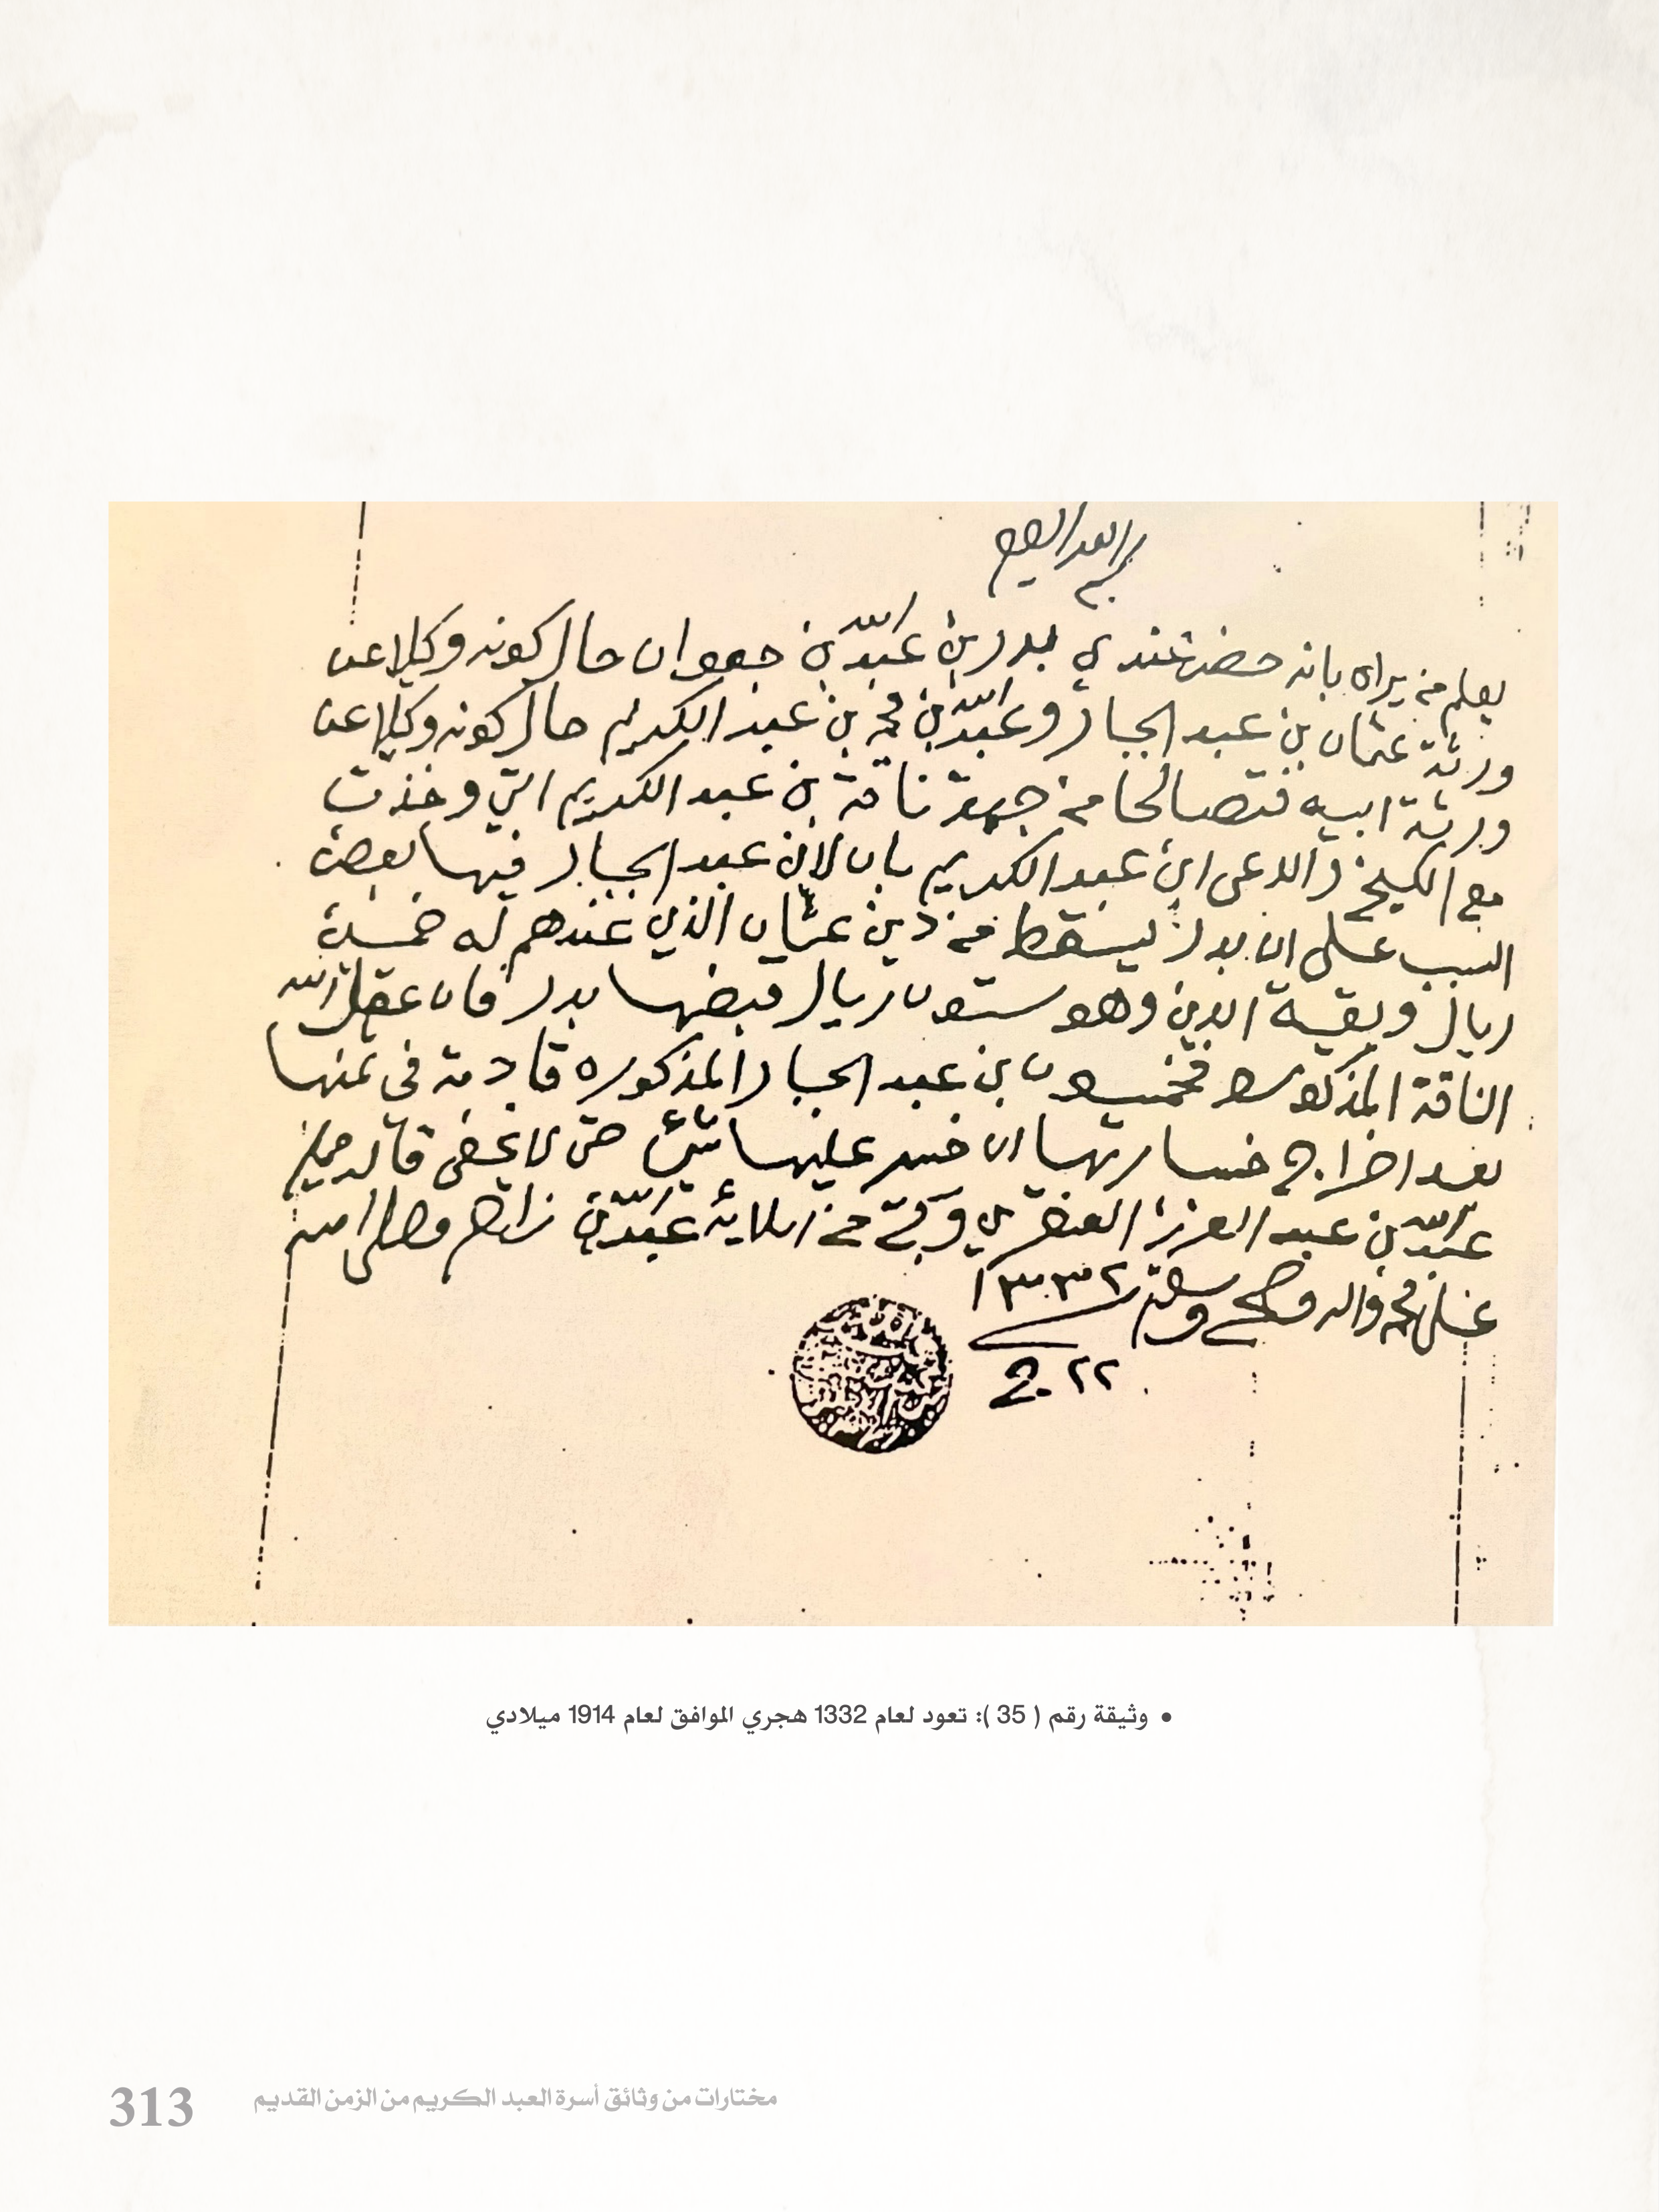 بسم الله الرحمن الرحيم
يعلم من يراه بانه حضر عندي بدر بن عبد الله بن جعوان حال كونه وكيلا عن
ورثة عثمان بن عبد الجبار وعبد الله بن محمد بن عبد الكريم حال كونه وكيلا عن
ورثة ابيه فتصالحا من جهة ناقة بن عبد الكريم التي وخذت
مع الكيخ والدعى ابن عبد الكريم بان لابن عبد الجبار فيها بعض
السبب على ان بدر يسقط من دين عثمان الذي عندهم له خمسين
ريال وبقية الدين وهو ستون ريال قبضها بدر فان عقل الله
الناقة المذكوره فخمسون بن عبد الجبار المذكوره قادمة في ثمنها
بعد اخراج خسارتها ان خسر عليها شي حتى لا يخفى قاله ممليه
عبد الله بن عبد العزيز العنقري وكتبه من املايه عبد الله بن زاحم وصلى الله
على محمد واله وصحبه وسلم ١٣٣٢
٢٢ ج
• وثيقة رقم ( 35 ): تعود لعام 1332 هجري الموافق لعام 1914 ميلادي
مختارات من وثائق أسرة العبد الكريم من الزمن القديم
313